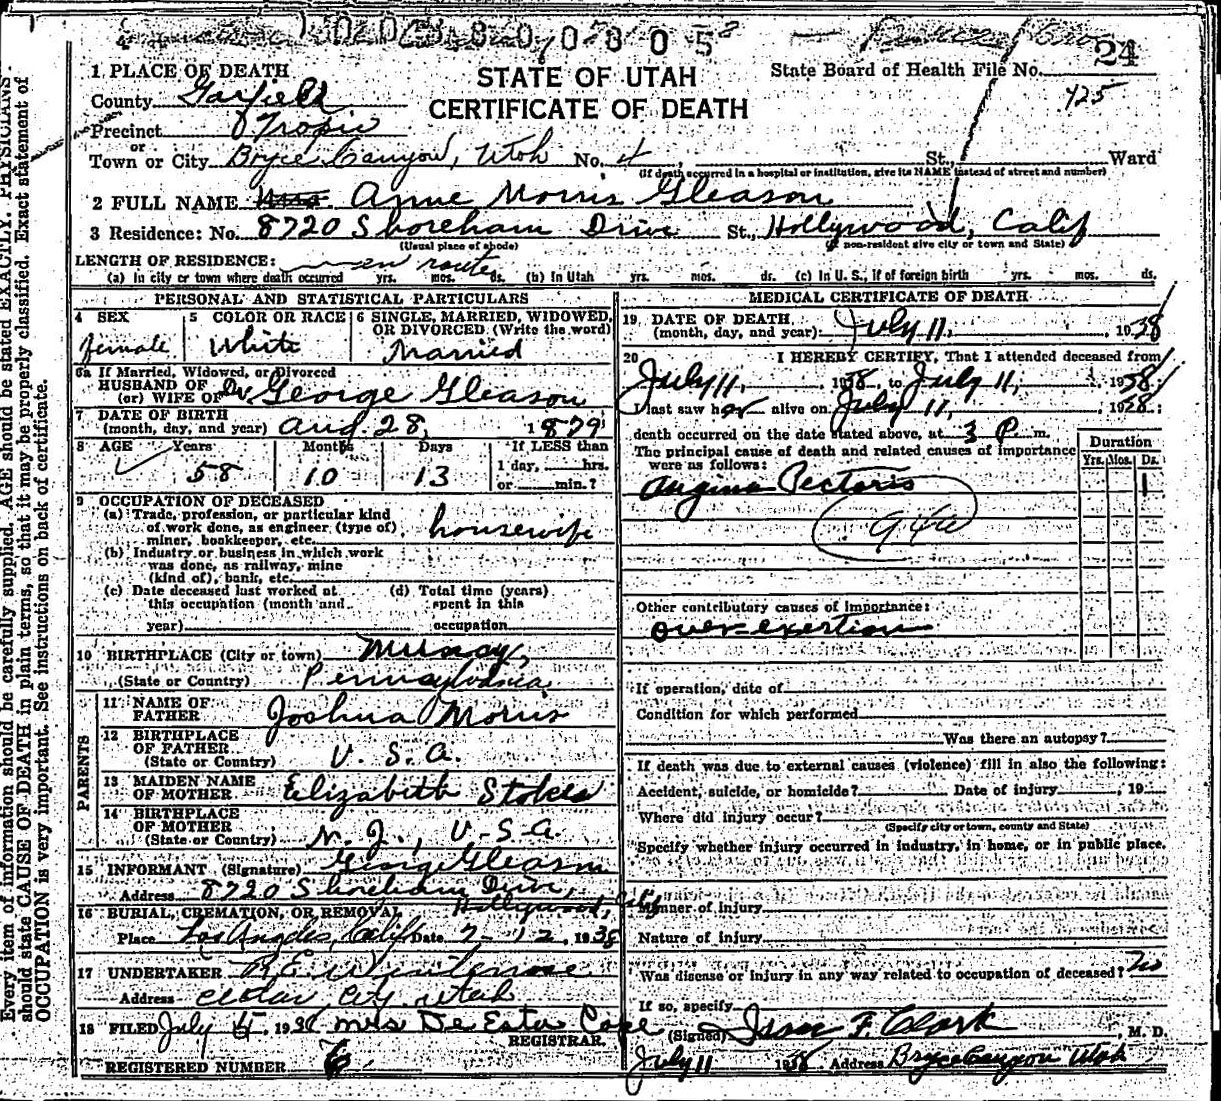 24
1 PLACE OF DEATH
STATE OF UTAH
State Board of Health File No.
425
County Garfield
CERTIFICATE OF DEATH
Precinct Tropic
or
Town or City Bryce Canyon, Utah No. 4 , St., Ward
(If death occurred in a hospital or institution, give its NAME instead of street and number)
2 FULL NAME Mrs Anne Morris Gleason
3 Residence: No. 8720 Shoreham Drive St., Hollywood, Calif
(Usual place of abode) (If non-resident give city or town and State)
LENGTH OF RESIDENCE: en route
(a) In city or town where death occurred yrs. mos. ds. (b) In Utah yrs. mos. ds. (c) In U. S., if of foreign birth yrs. mos. ds.
PERSONAL AND STATISTICAL PARTICULARS
4 SEX 5 COLOR OR RACE 6 SINGLE, MARRIED, WIDOWED, OR DIVORCED (Write the word)
female White Married
6a If Married, Widowed, or Divorced
HUSBAND OF
(or) WIFE OF Dr George Gleason
7 DATE OF BIRTH
(month, day, and year) Aug. 28, 1879
8 AGE Years Months Days If LESS than
58 10 13 1 day, hrs.
or min.?
9 OCCUPATION OF DECEASED
(a) Trade, profession, or particular kind
of work done, as engineer (type of)
miner, bookkeeper, etc. housewife
(b) Industry or business in which work
was done, as railway, mine
(kind of), bank, etc.
(c) Date deceased last worked at
this occupation (month and
year)
(d) Total time (years)
spent in this
occupation
10 BIRTHPLACE (City or town) Muncy,
(State or Country) Pennsylvania
PARENTS
11 NAME OF
FATHER Joshua Morris
12 BIRTHPLACE
OF FATHER
(State or Country) U. S. A.
13 MAIDEN NAME
OF MOTHER Elizabeth Stokes
14 BIRTHPLACE
OF MOTHER
(State or Country) N. J., U.S.A.
15 INFORMANT (Signature) George Gleason
Address 8720 Shoreham Drive,
Hollywood, City
16 BURIAL, CREMATION, OR REMOVAL
Place Los Angeles, Calif Date 7-12, 1938
17 UNDERTAKER
Address Cedar City, Utah
18 FILED July 1938 Mrs De Esta Cope
REGISTRAR.
REGISTERED NUMBER 6
MEDICAL CERTIFICATE OF DEATH
19 DATE OF DEATH
(month, day, and year) July 11, 1938
20 I HEREBY CERTIFY, That I attended deceased from
July 11, 1938, to July 11, 1938;
I last saw her alive on July 11, 1938;
death occurred on the date stated above, at 3 P. m.
The principal cause of death and related causes of importance
were as follows:
Duration
Yrs. Mos. Ds.
Angina Pectoris 1
94a
Other contributory causes of importance:
over-exertion
If operation, date of
Condition for which performed
Was there an autopsy?
If death was due to external causes (violence) fill in also the following:
Accident, suicide, or homicide? Date of injury , 19
Where did injury occur?
(Specify city or town, county and State)
Specify whether injury occurred in industry, in home, or in public place.
Manner of injury
Nature of injury
Was disease or injury in any way related to occupation of deceased? No
If so, specify
(Signed) F. Clark M. D.
July 11 1938 Address Bryce Canyon Utah
Every item of information should be carefully supplied. AGE should be stated EXACTLY. PHYSICIANS
should state CAUSE OF DEATH in plain terms, so that it may be properly classified. Exact statement of
OCCUPATION is very important. See instructions on back of certificate.